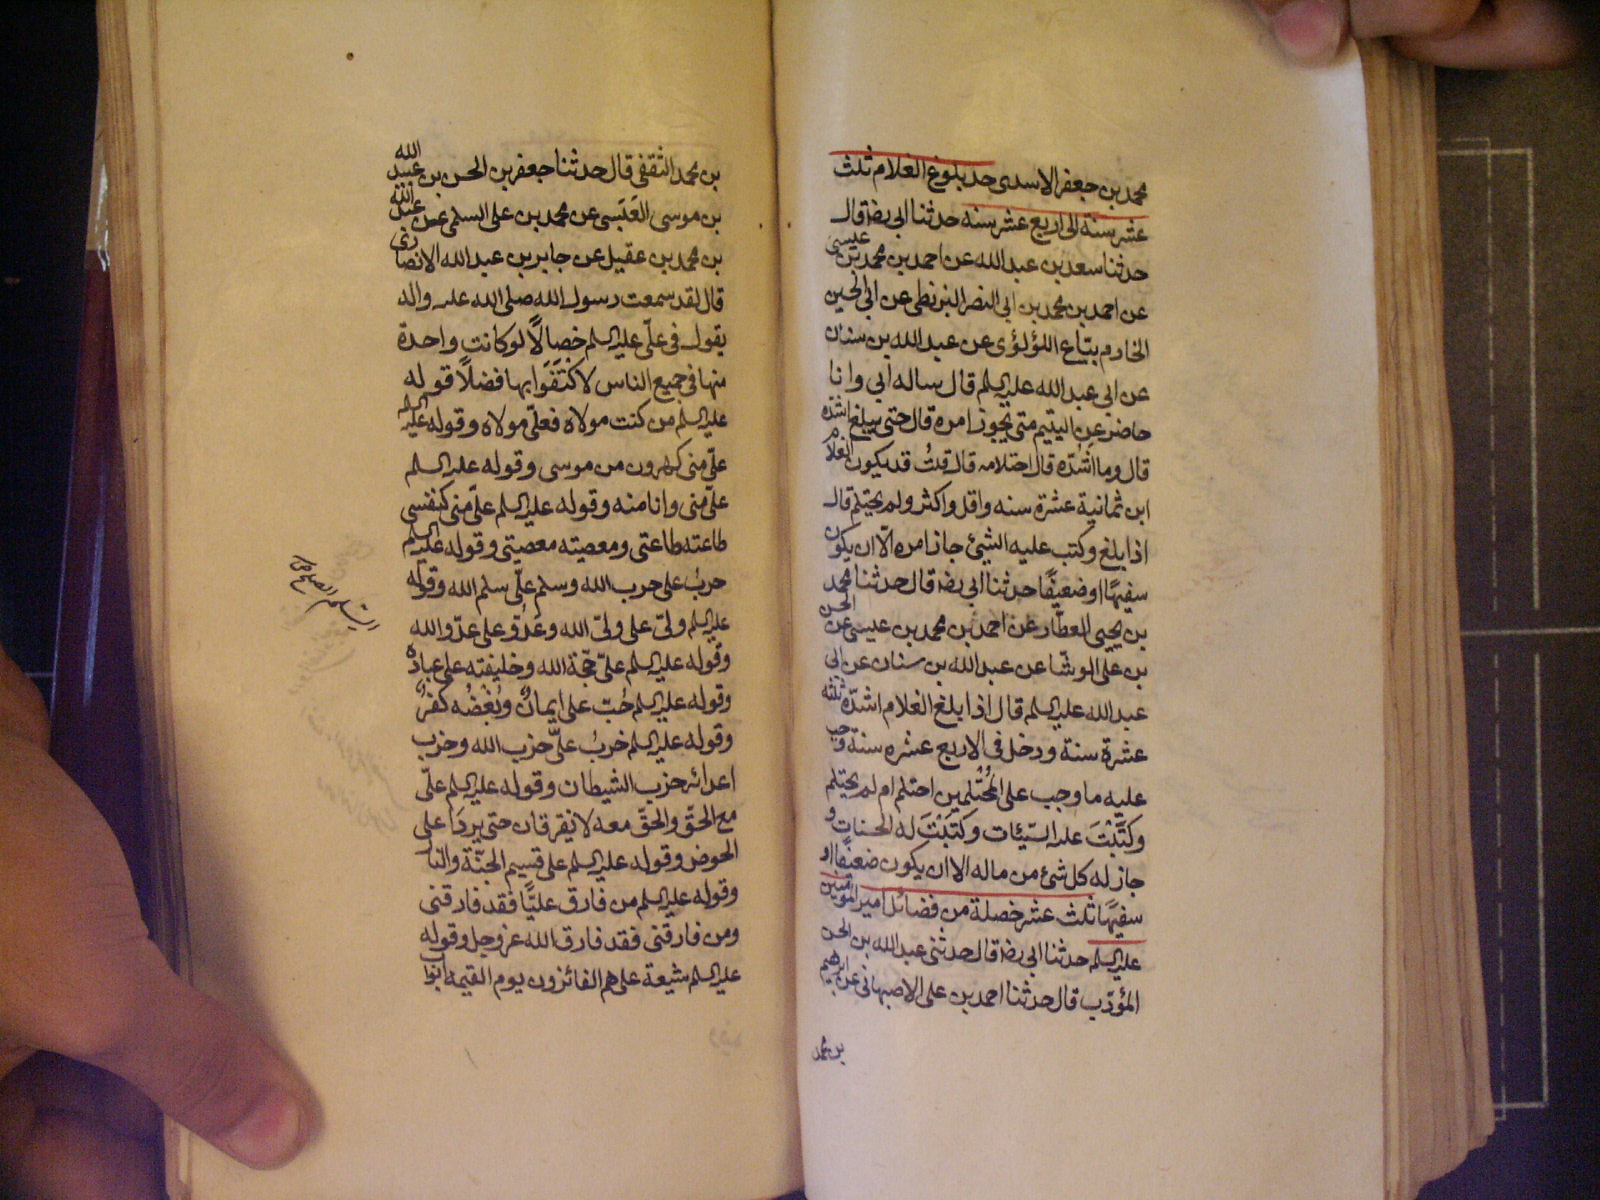 محمد بن جعفر الاسدى حد بلوغ الغلام ثلث
عشر سنة الى اربع عشر سنه حدثنا ابى رضه قال
حدثنا سعد بن عبد الله عن احمد بن محمد بن عيسى
عن احمد بن محمد بن ابى النصر البزنطى عن ابى الحسين
الخادم بياع اللؤلؤى عن عبد الله بن سنان
عن ابى عبد الله عليه السلم قال ساله ابى وانا
حاضر عن اليتيم متى يجوز امره قال حتى يبلغ اشدّه
قال وما اشُدّه قال احتلامه قال قلتُ قد يكون الغلام
ابن ثمانية عشرة سنه واقل واكثر ولم يحتلم قال
اذا بلغ وكتب عليه الشئ جاز امره الّا ان يكون
سفيهًا او ضعيفًا حدثنا ابى رضه قال حدثنا محمد
بن يحيى العطّار عن احمد بن محمد بن عيسى عن الحسن
بن على الوشّا عن عبد الله بن سنان عن ابى
عبد الله عليه السلم قال اذا بلغ الغلام اشدّه ثلثه
عشرة سنة ودخل فى الاربع عشره سنة وجب
عليه ما وجب على المُحْتلمين احتلم ام لم يحتلم
وكتَبْتَ عليه السّيّئات وكتَبْتَ له الحسنات و
جاز له كل شئ من ماله الا ان يكون ضعيفًا او
سفيهًا ثلث عشر خصلة من فضائل امير المؤمنين
عليه السلم حدثنا ابى رضه قال حدثنى عبد الله بن الحسن
المؤدّب قال حدثنا احمد بن على الاصبهانى عن ابرهيم
بن محمد
بن محمد الثقفى قال حدثنا جعفر بن الحسن بن عبيد الله
بن موسى العَبَسى عن محمد بن على السلمى عن عبد الله
بن محمد بن عقيل عن جابر بن عبد الله الانصارى
قال لقد سمعت رسول الله صلى الله عليه واله
يقول فى علّى عليه السلم خصالًا لو كانت واحدة
منها فى جميع الناس لاكتَفَوا بها فضلًا قوله
عليه السلم من كنت مولاه فعلّى مولاه وقوله عليه السلم
علّى منى كهرون من موسى وقوله عليه السلم
علّى منى وانا منه وقوله عليه السلم علّى منى كنفسى
طاعته طاعتى ومعصيته معصيتى وقوله عليه السلم
حربُ على حرب الله وسلم علّى سلم الله وقوله
عليه السلم ولىّ على ولىّ الله وعَدُوّ على عدّو الله
وقوله عليه السلم علّى حجّة الله وخليفته على عباده
وقوله عليه السلم حُبّ على ايمانٌ وبُغْضُه كفرٌ
وقوله عليه السلم حزبُ علىّ حزب الله وحزب
اعدائه حزب الشيطان وقوله عليه السلم علّى
مع الحقّ والحقّ معه لا يفترقان حتى يردَا على
الحوض وقوله عليه السلم على قسيم الجنّة والنار
وقوله عليه السلم من فارق عليًّا فقد فارقنى
ومن فارقنى فقد فارق الله عزوجل وقوله
عليه السلم شيعة على هم الفائزون يوم القيمه ابواب
السلم الصلح